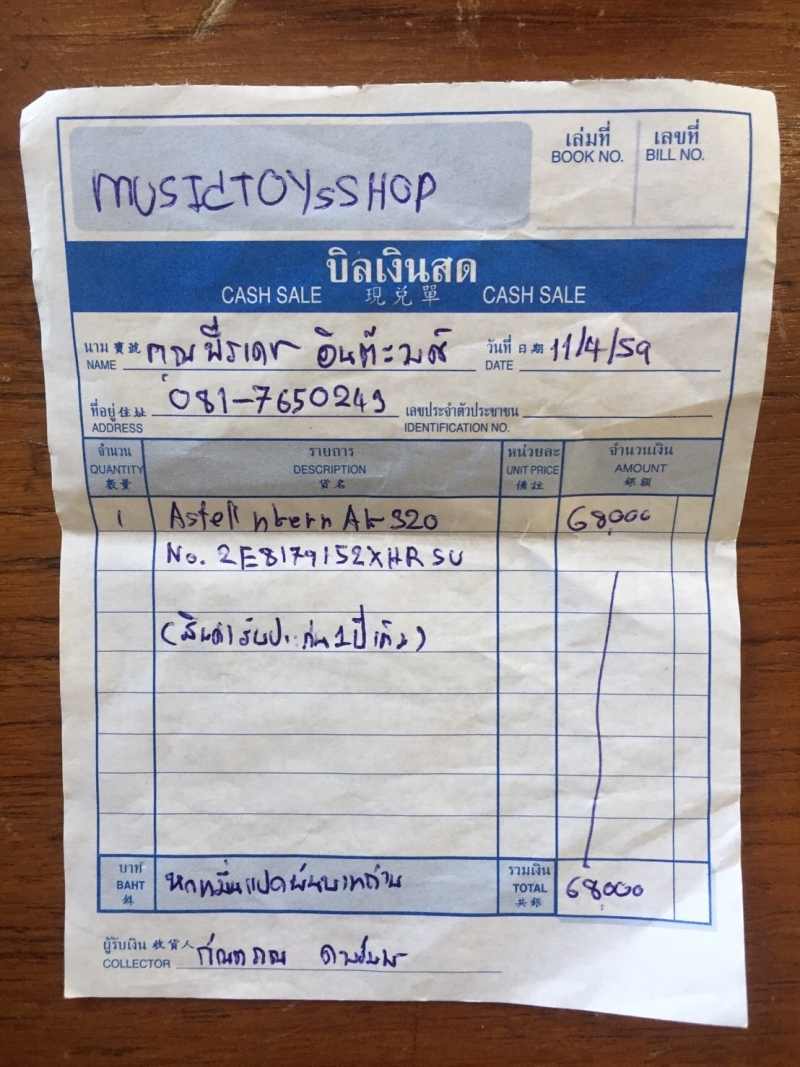 เล่มที่ เลขที่
BOOK NO. BILL NO.
MUSIdTOYsSHOP
บิลเงินสด
CASH SALE 現兌單 CASH SALE
นาม 寶號 คุณพีรเดช วันที่ 日期 11/4/59
NAME DATE
ที่อยู่ 住址 081-7650249 เลขประจำตัวประชาชน
ADDRESS IDENTIFICATION NO.
จำนวน รายการ หน่วยละ จำนวนเงิน
QUANTITY DESCRIPTION UNIT PRICE AMOUNT
數量 貨名 備註 銀額
1 Astell AK 320 68,000
No. 2E8179152XHRSU
(สินค้ารับประกัน 1 ปีเต็ม)
บาท หกหมื่นแปดพันบาทถ้วน รวมเงิน
BAHT TOTAL 68,000
銖 共銀
ผู้รับเงิน 收貨人
COLLECTOR